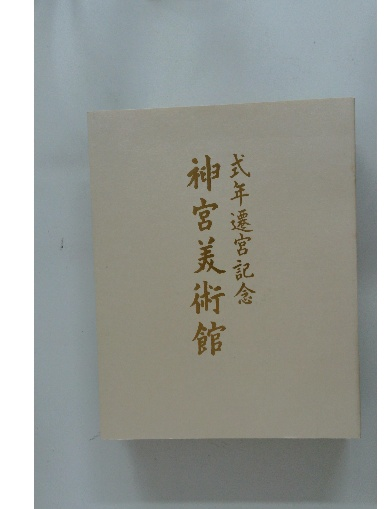 式年遷宮記念
神宮美術館